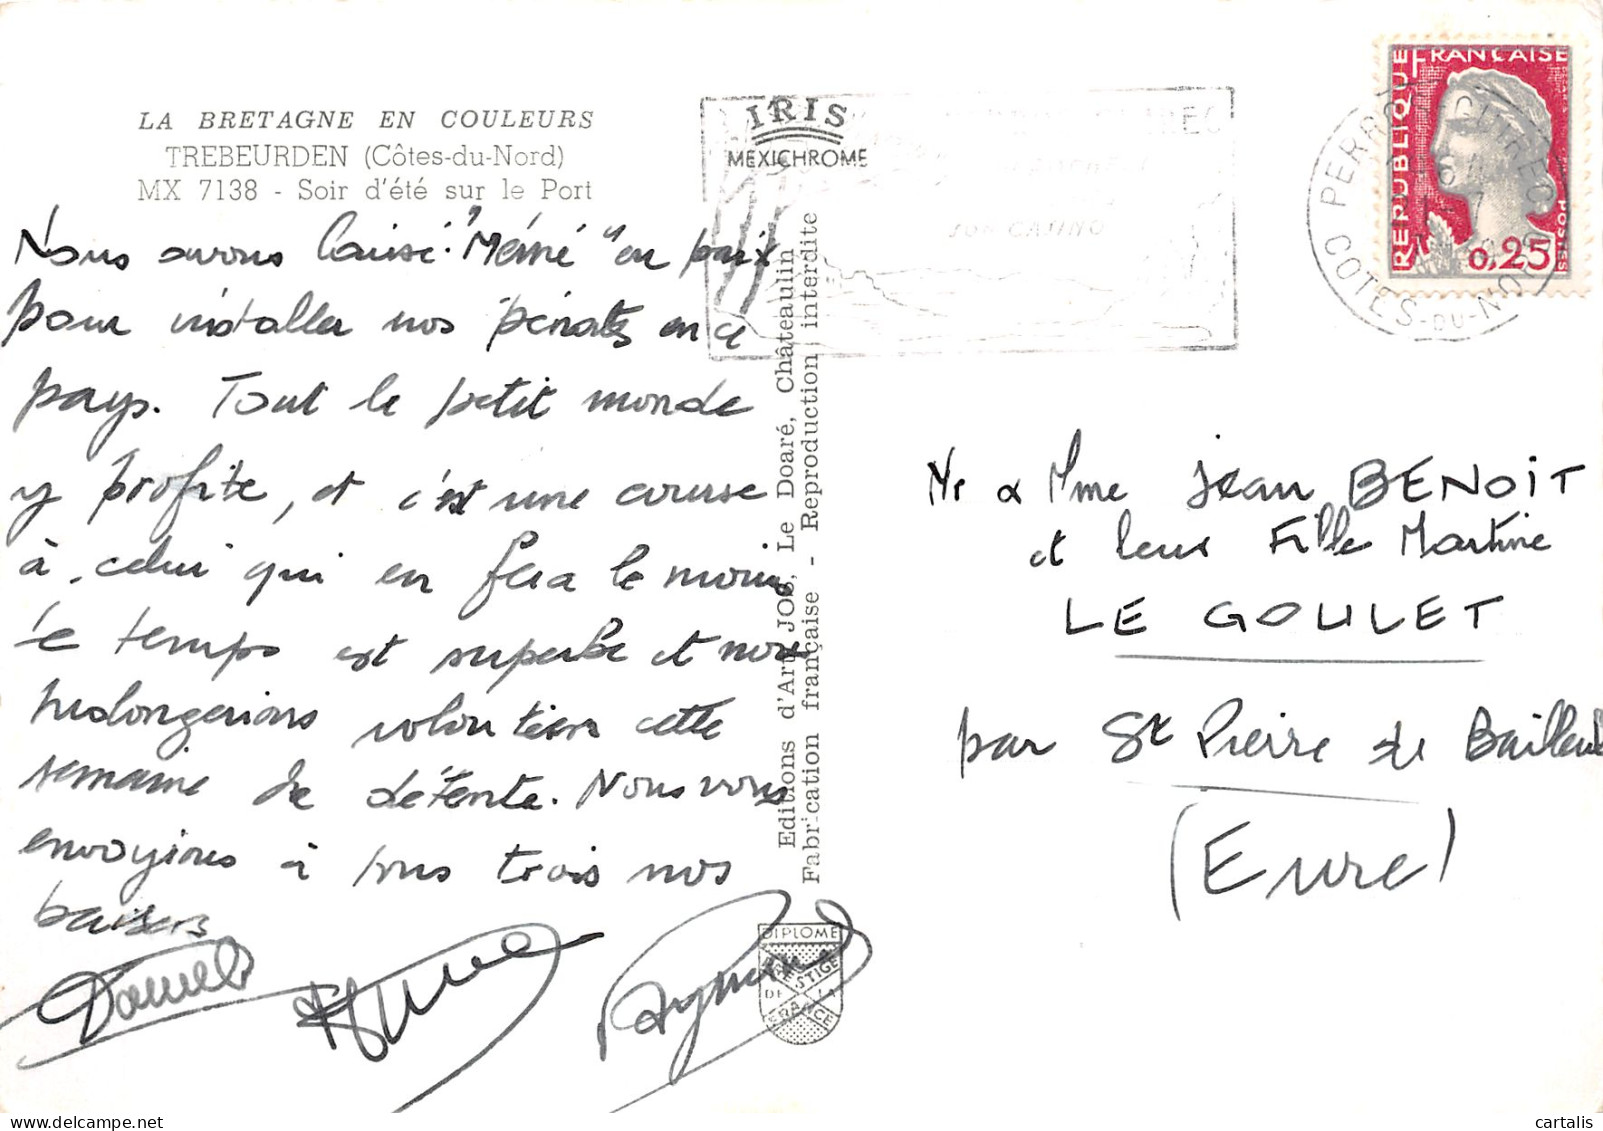 LA BRETAGNE EN COULEURS
TREBEURDEN (Côtes-du-Nord)
MX 7138 - Soir d'été sur le Port
Nous avons laissé "Mémé" en paix
pour installer nos pénates en ce
pays. Tout le petit monde
y profite, et c'est une course
à celui qui en fera le moins
Le temps est superbe et nous
prolongerions volontiers cette
semaine de détente. Nous vous
envoyons à tous trois nos
baisers
Daniel
Raymond
IRIS
MEXICHROME
Editions d'Art JOS, Le Doaré, Châteaulin
Fabrication française - Reproduction interdite
DIPLOME
PRESTIGE
DE LA
FRANCE
SON CASINO
REPUBLIQUE FRANÇAISE
POSTES
0,25
PERROS-GUIREC
COTES-DU-NORD
Mr & Mme Jean BENOIT
et leur Fille Martine
LE GOULET
par St Pierre de Bailleul
(Eure)
cartalis - delcampe.net